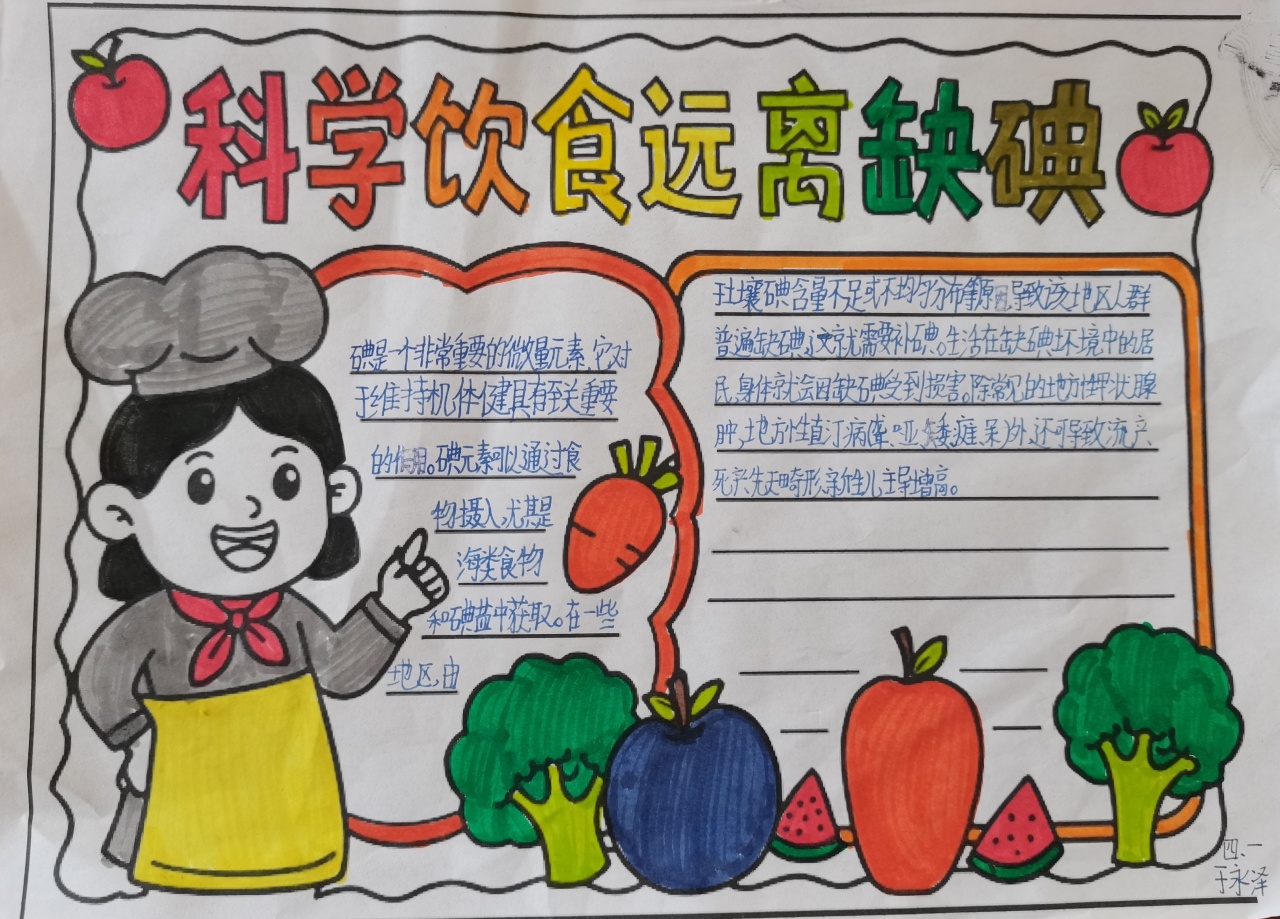 科学饮食远离缺碘
碘是一个非常重要的微量元素,它对
于维持机体健具有至关重要
的作用。碘元素可以通过食
物摄入,尤其是
海类食物
和碘盐中获取。在一些
地区,由
于土壤碘含量不足或不均匀分布等原因,导致该地区人群
普遍缺碘,这就需要补碘。生活在缺碘环境中的居
民,身体就会因缺碘受到损害。除常见的地方性甲状腺
肿,地方性 汀病聋、哑、矮、痴呆外,还可导致流产、
死产、先天畸形,新生儿 增高。
四、一
于永泽